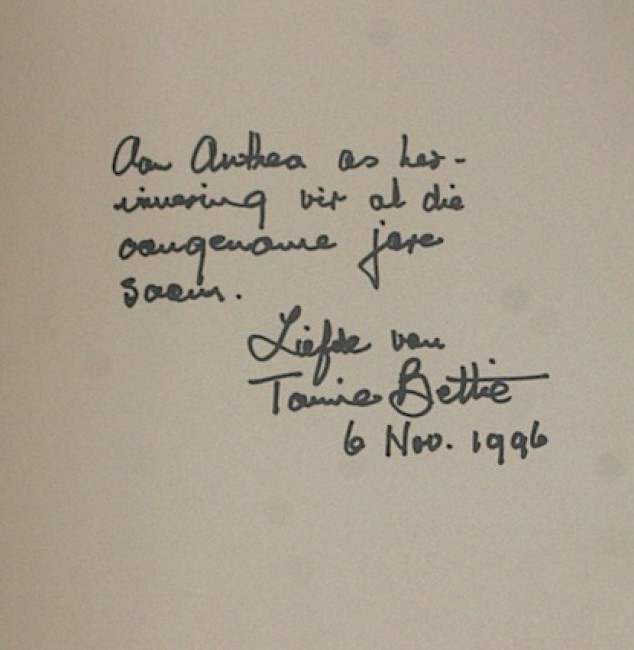 Aan Anthea as her-
innering vir al die
aangename jare
saam.
Liefde van
Tannie Bettie
6 Nov. 1996